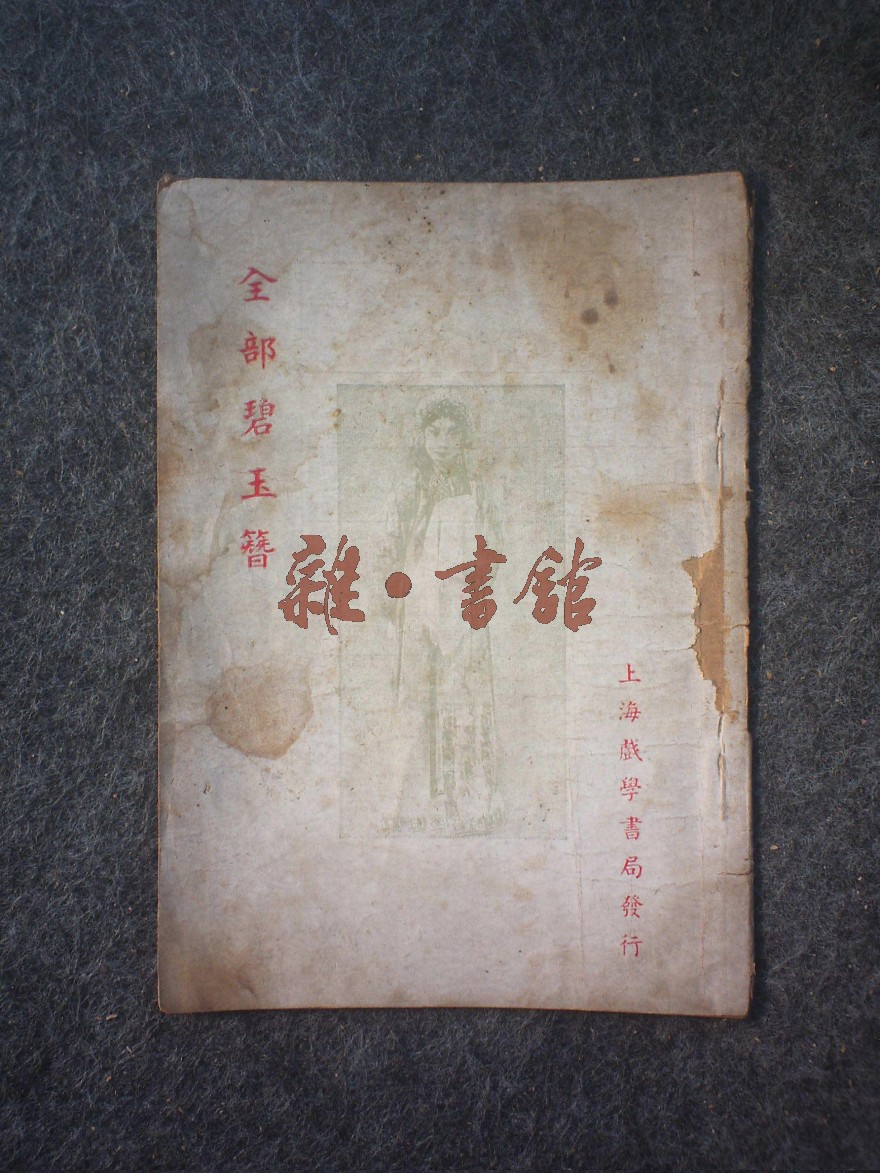 全部碧玉簪
雜·書館
上海戲學書局發行